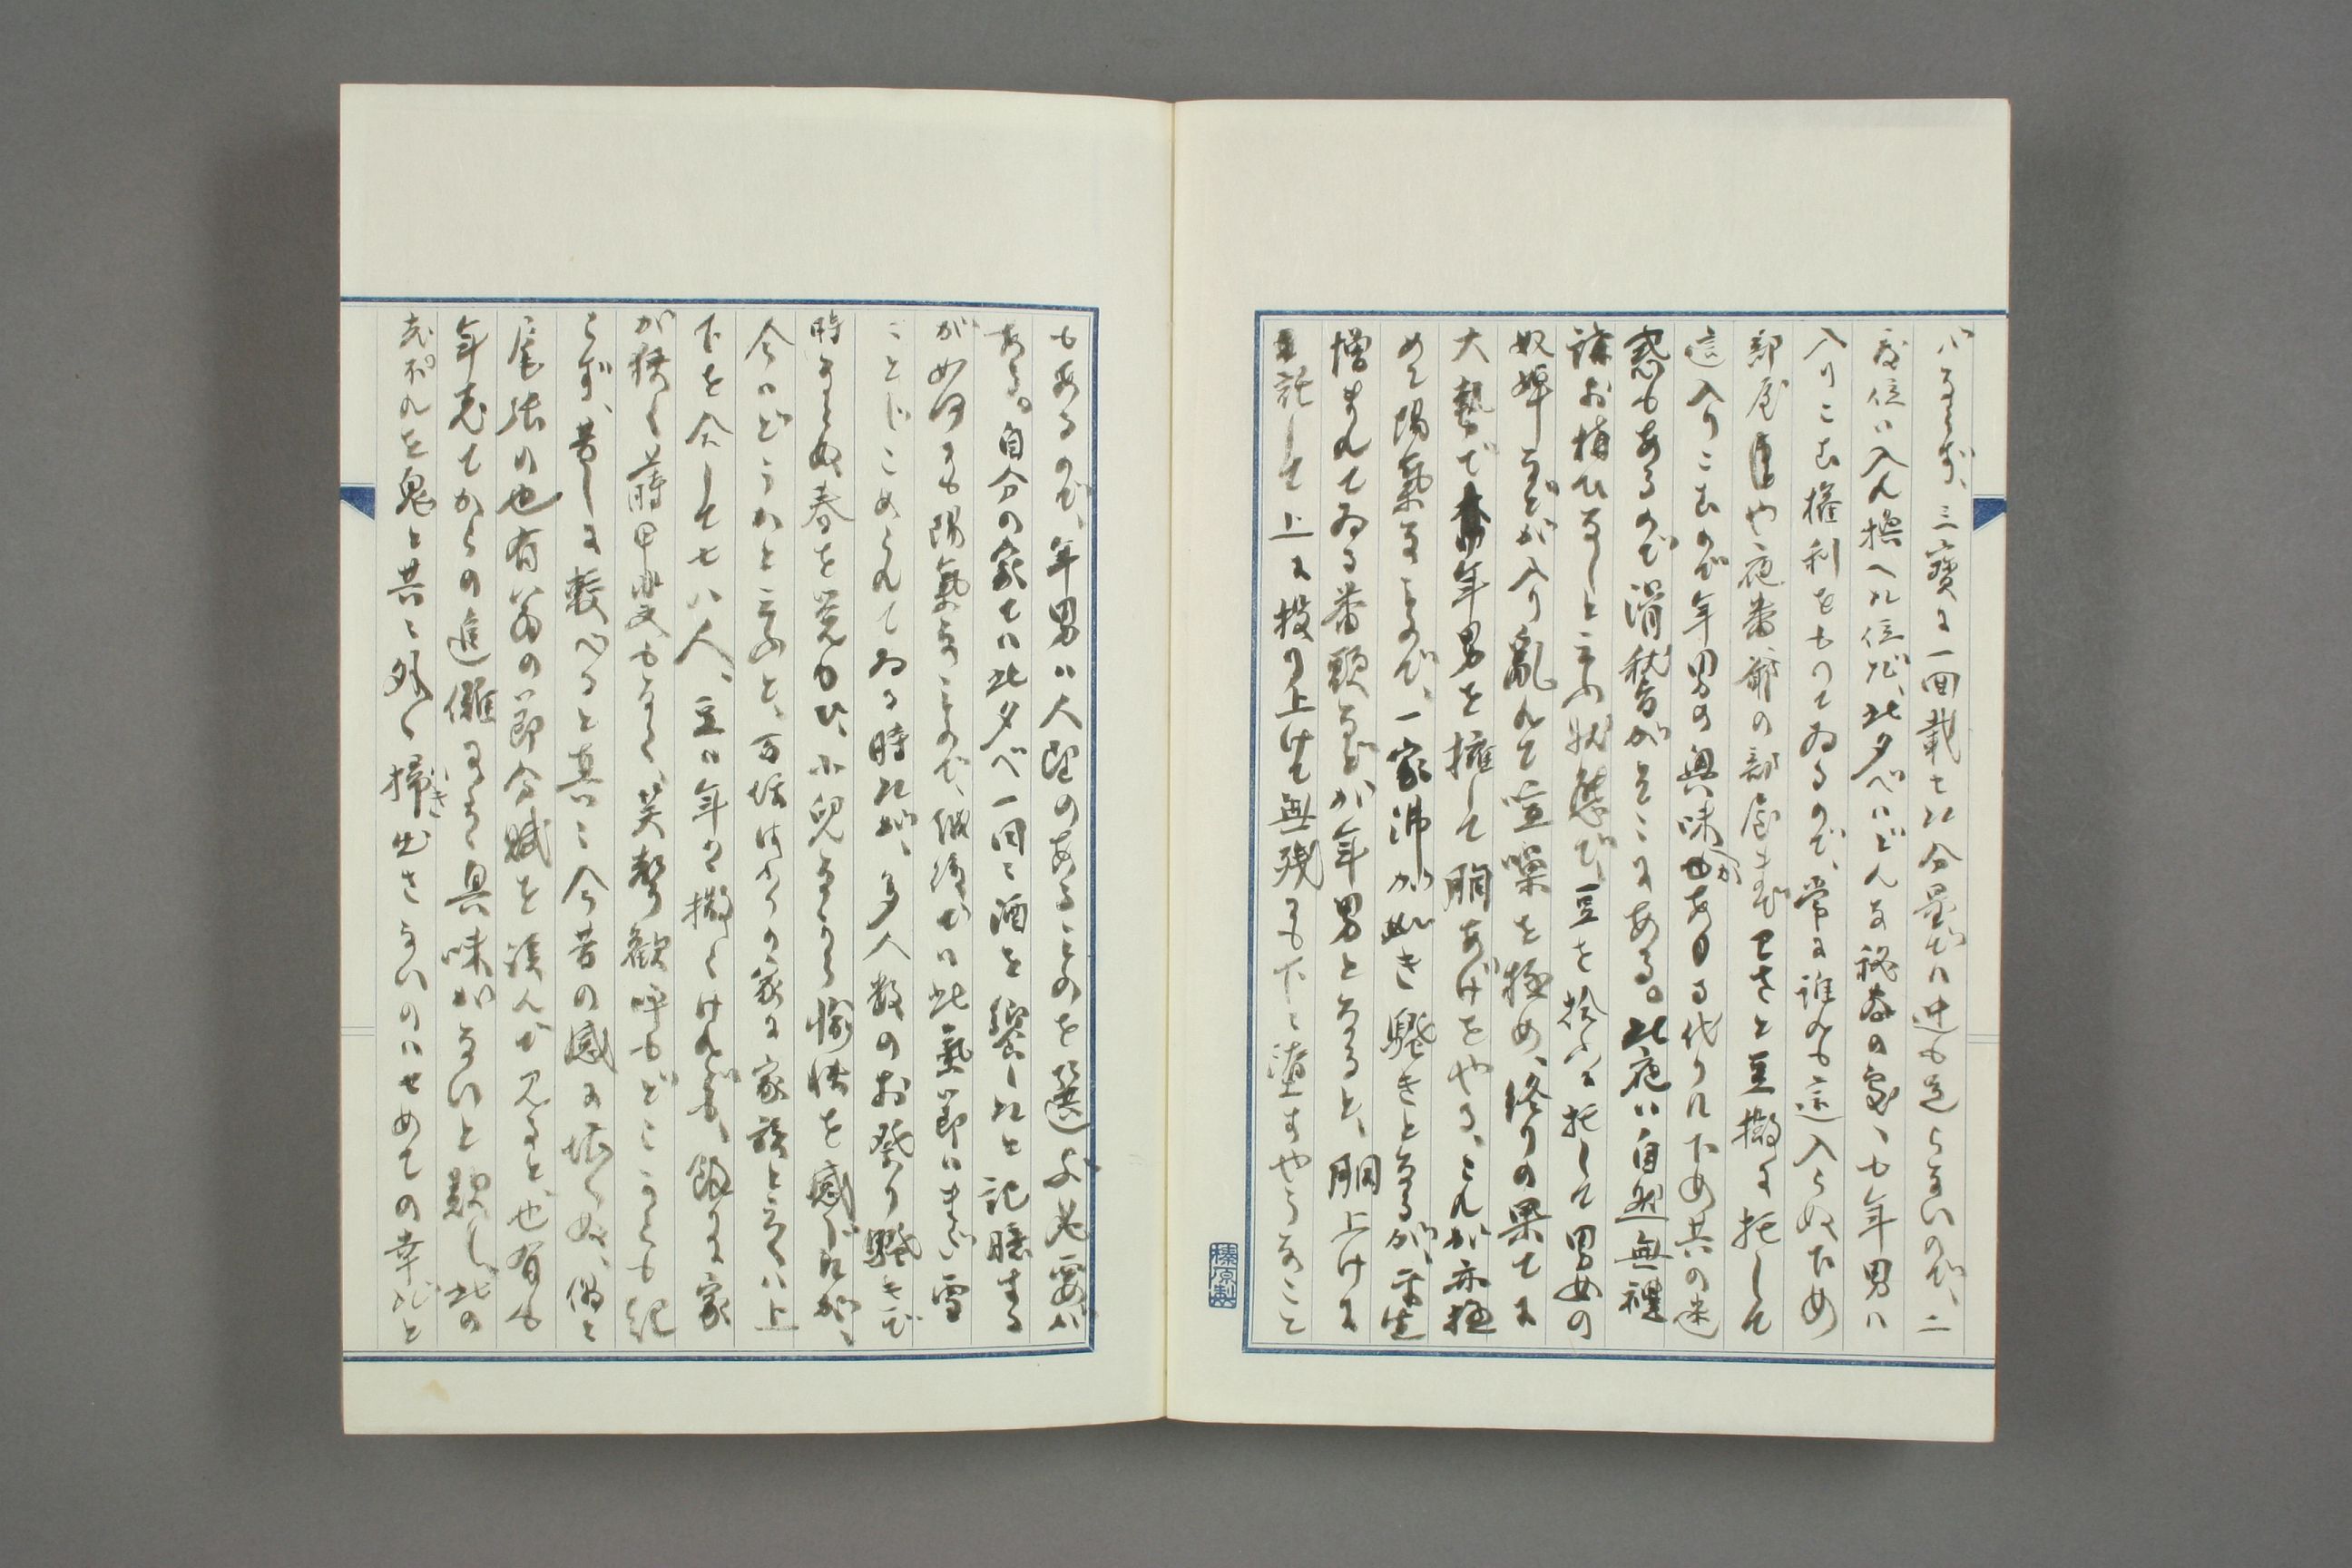 バならず、三寶に一回載せた分量でハ迚も足らないので、二
度位ハ入れ換へた位だ、此夕べハどんな秘密の家へも年男ハ
入りこむ權利をもつてゐるので、常に誰れも這入らぬ下女
部屋や夜番爺の部屋までワざと豆撒に托して
這入りこむので年男の興味がある代りに下女共の迷
惑もあるので滑稽がそこにある。此夜ハ自然無禮
講お構ひなしと云ふ狀態で、豆を拾ふに托して男女の
奴婢などが入り亂れて喧噪を極め、終りの果てに
大勢で年男を擁して胴あげをやる、これが亦極
めて陽氣なもので、一家沸が如き騷ぎとなるが、平生
憎まれてゐる番頭などが年男となると、胴上げに
託して上に投り上げて無殘にも下に墜すやうなこと
もあるので、年男ハ人望のあるものを選ぶ必要ハ
ある。自分の家でハ此夕べ一同に酒を饗したと記臆する
が如何にも陽氣なもので、越後でハ此氣節ハまだ雪
にとじこめられてゐる時だが、多人數のお祭り騷ぎで
時ならぬ春を覺ひ、小兒ながら愉快を感じたが、
今ハどうかと云ふと、百坪计りの家に家族とてハ上
下を合して七八人、豆ハ年々撒くけれども、餘りに家
が狹く蒔甲斐もなく、笑聲歡呼もどこからも起
らず、昔しに較べると真に今昔の感に堪へぬ、偶と
尾張の也有翁の節分賦を讀んで見ると、也有も
年老てからの追儺ハ興味がないと歎し、此の
老ボれを鬼と共に外へ掃き出さないのハせめての幸だと
榛原製